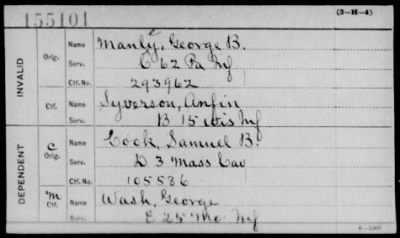 155101
(3-H-4)
INVALID
Orig.
Name Manly, George B.
Serv. C 62 Pa Inf
Ctf. No. 293962
Ctf.
Name Syverson, Anfin
Serv. B 15 Wis Inf
DEPENDENT
C
Orig.
Name Cook, Samuel B.
Serv. D 3 Mass Cav
Ctf. No. 105536
M
Ctf.
Name Wash, George
Serv. E 25 Mo Inf